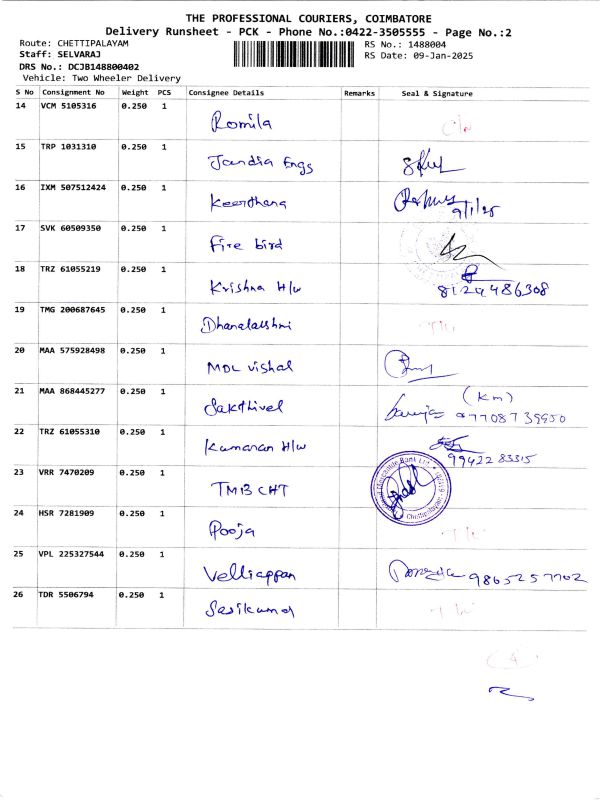 THE PROFESSIONAL COURIERS, COIMBATORE
Delivery Runsheet - PCK - Phone No.:0422-3505555 - Page No.:2
Route: CHETTIPALAYAM RS No.: 1488004
Staff: SELVARAJ RS Date: 09-Jan-2025
DRS No.: DCJB148800402
Vehicle: Two Wheeler Delivery
S No Consignment No Weight PCS Consignee Details Remarks Seal & Signature
14 VCM 5105316 0.250 1 Romila
15 TRP 1031310 0.250 1 Jandia Engs
16 IXM 507512424 0.250 1 Keerthana 9/1/25
17 SVK 60509350 0.250 1 Fire bird
18 TRZ 61055219 0.250 1 Krishna H/w 8124486308
19 TMG 200687645 0.250 1 Dhanalakshmi
20 MAA 575928498 0.250 1 MDL Vishal
21 MAA 868445277 0.250 1 Sakthivel (Km)
22 TRZ 61055310 0.250 1 Kumaran H/w 99422 83315
23 VRR 7470209 0.250 1 TMB CHT
24 HSR 7281909 0.250 1 Pooja
25 VPL 225327544 0.250 1 Velliappan 9865257702
26 TDR 5506794 0.250 1 Sasikumar